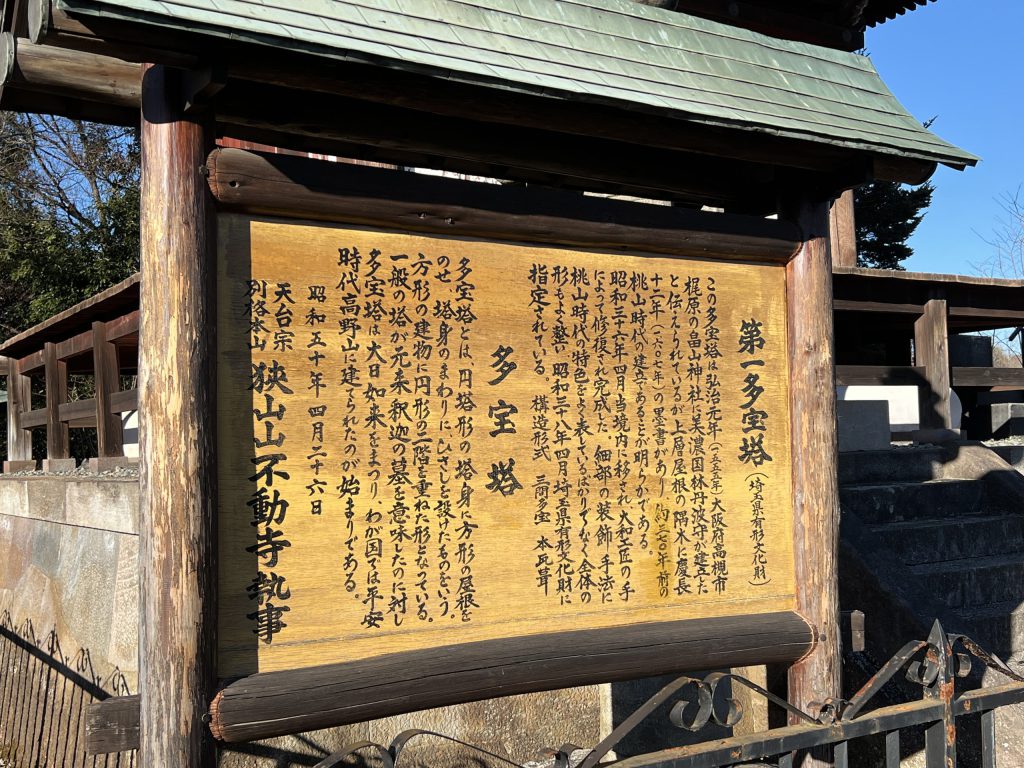 第一多宝塔
(埼玉県有形文化財)
この多宝塔は弘治元年(一五五五年)大阪府高槻市
梶原の畠山神社に美濃国林丹波守が建立した
と伝えられているが上層屋根の隅木に慶長
十二年(一六〇七年)の墨書があり約三七〇年前の
桃山時代の建立であることが明らかである。
昭和三十六年四月当境内に移され大和工匠の手
によって修復され完成した。細部の装飾 手法に
桃山時代の特色をよく表しているばかりでなく全体の
形もよく整い昭和三十八年四月埼玉県有形文化財に
指定されている。 構造形式 三間多宝 本瓦葺
多宝塔
多宝塔とは、円塔形の塔身に方形の屋根を
のせ 塔身のまわりにひさしを設けたものをいう。
方形の建物に円形の二階を重ねた形となっている。
一般の塔が元来釈迦の墓を意味したのに対し
多宝塔は大日如来をまつり、わが国では平安
時代高野山に建てられたのが始まりである。
昭和五十年四月二十六日
天台宗
別格本山 狭山山不動寺執事